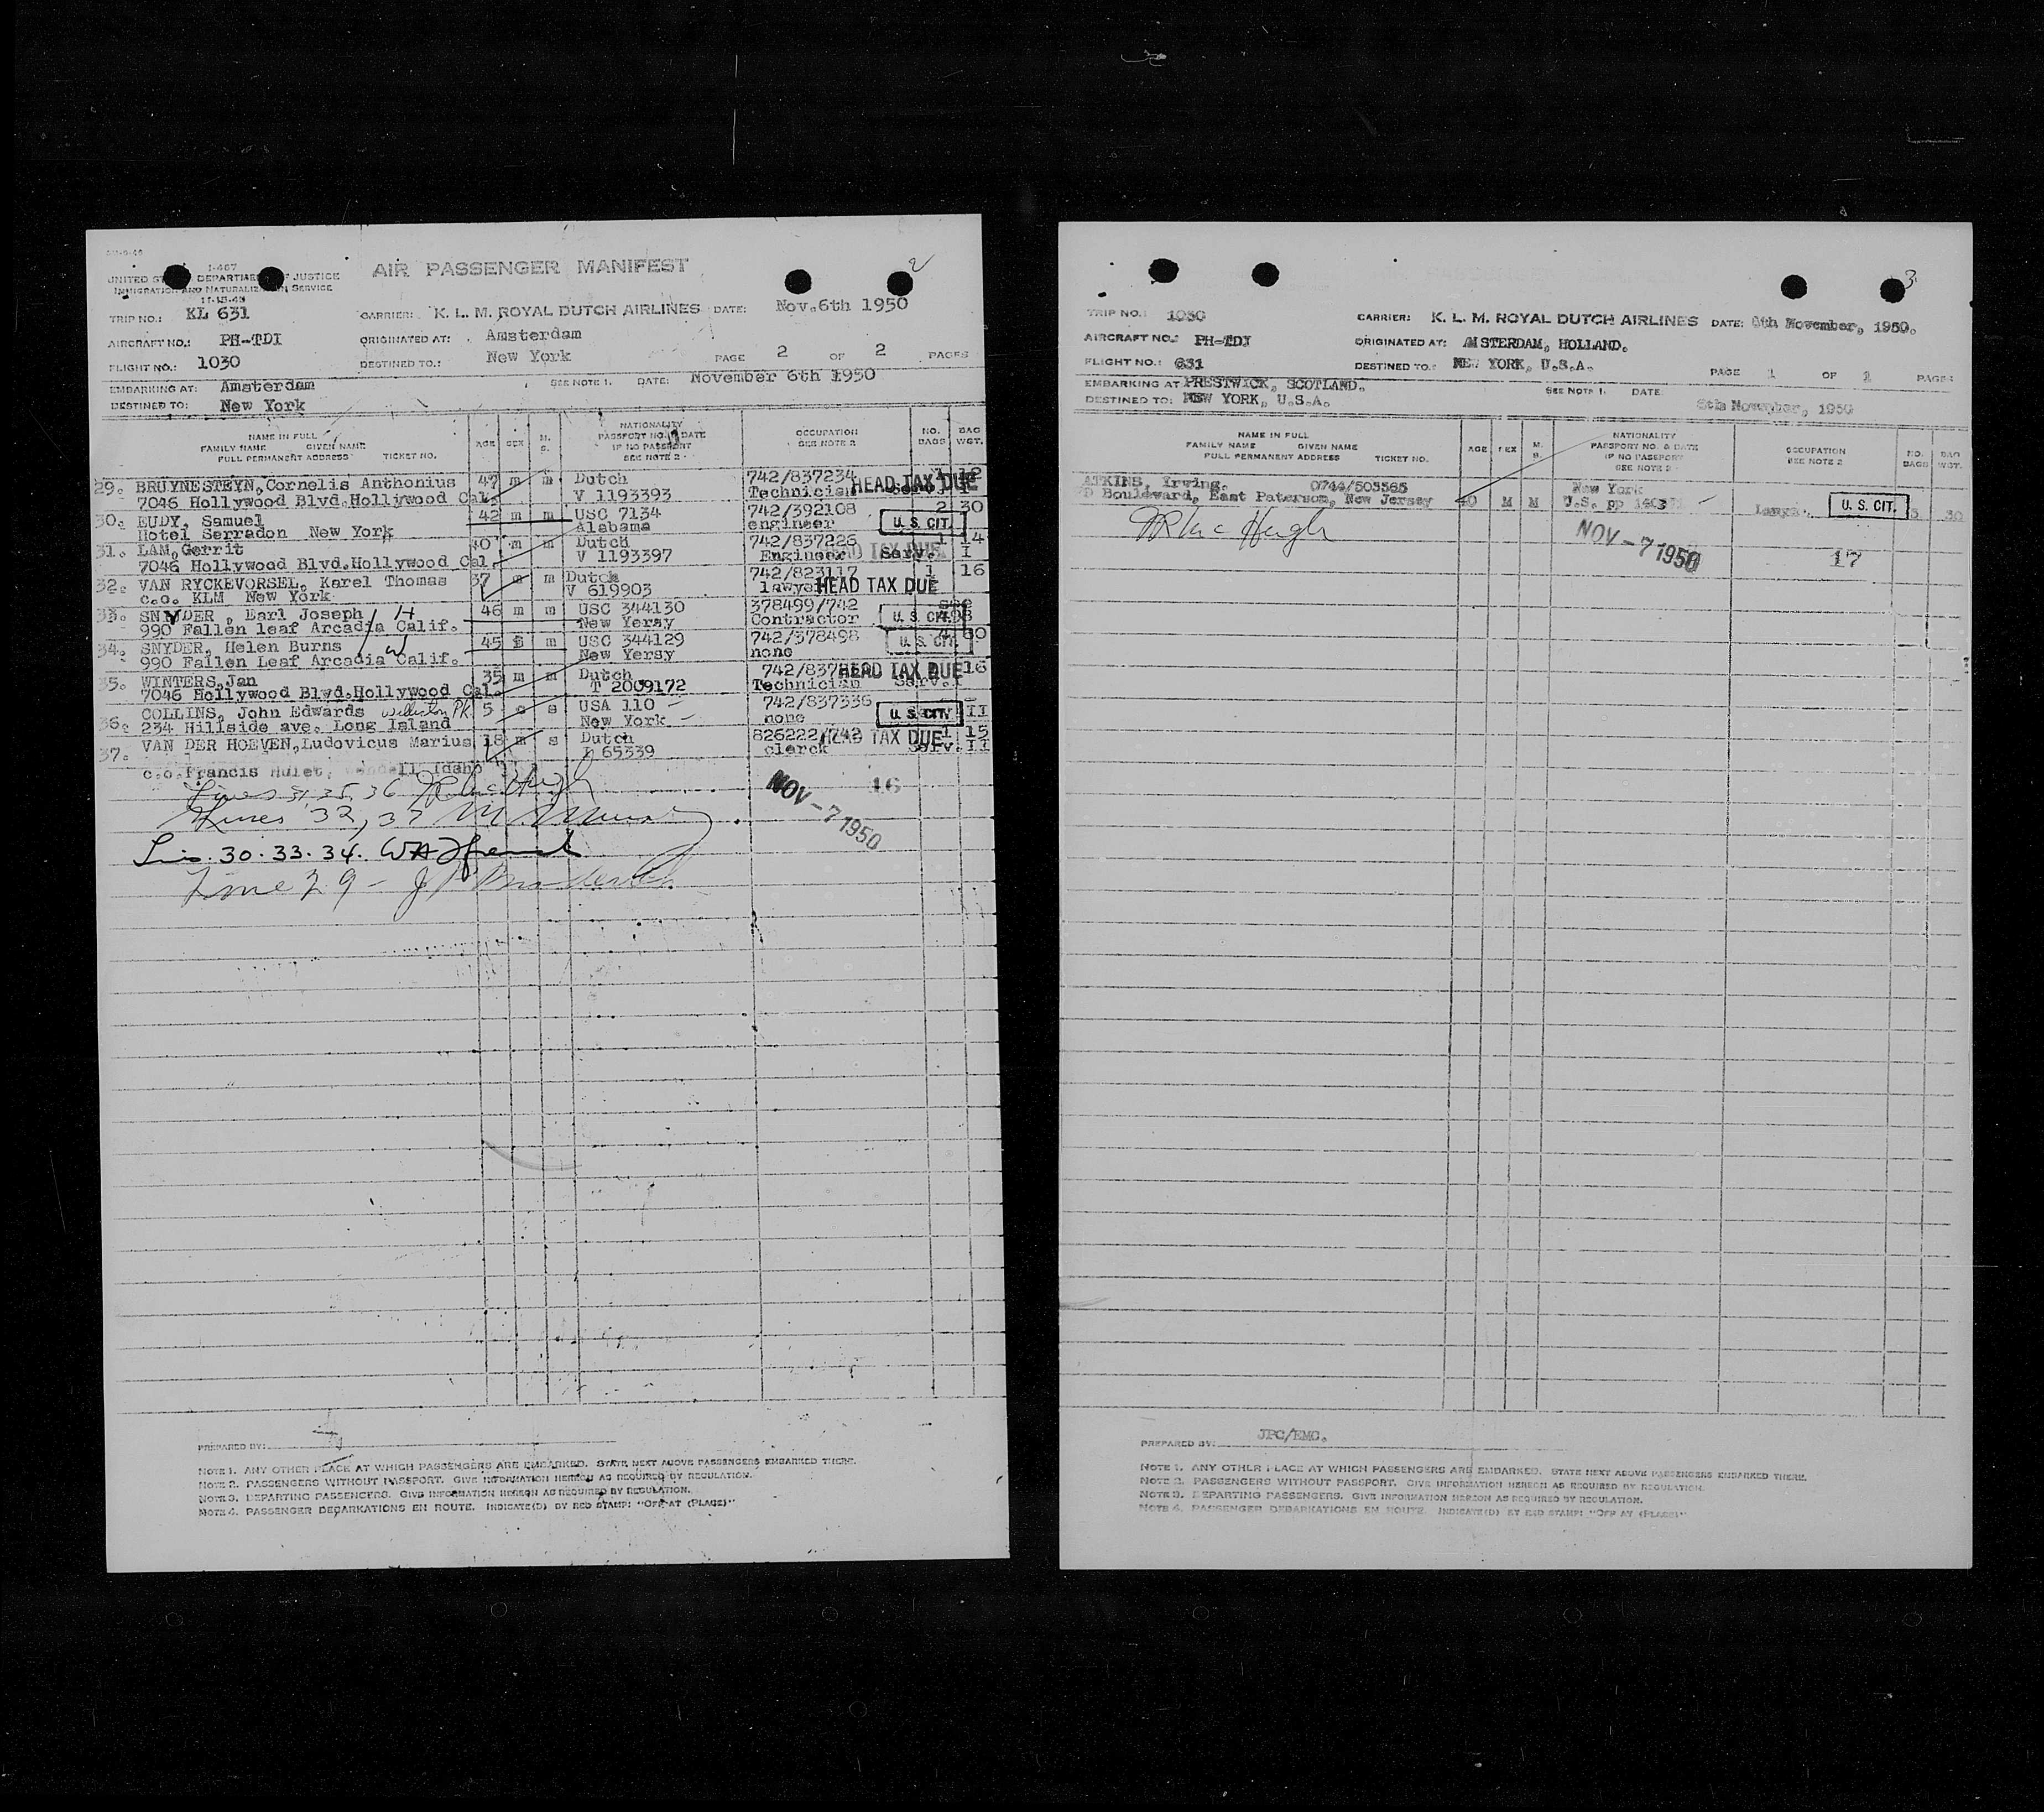 2
I-467
UNITED ST DEPARTME OF JUSTICE
IMMIGRATION AND NATURALIZ N SERVICE
11-15-48
AIR PASSENGER MANIFEST
TRIP NO.: KL 631
CARRIER: K. L. M. ROYAL DUTCH AIRLINES DATE: Nov.6th 1950
AIRCRAFT NO.: PH-TDI ORIGINATED AT: Amsterdam
FLIGHT NO.: 1030 DESTINED TO.: New York PAGE 2 OF 2 PAGES
EMBARKING AT: Amsterdam SEE NOTE 1. DATE: November 6th 1950
DESTINED TO: New York
NAME IN FULL
FAMILY NAME GIVEN NAME
FULL PERMANENT ADDRESS TICKET NO.
AGE SEX M. S.
NATIONALITY
PASSPORT NO. & DATE
IF NO PASSPORT
SEE NOTE 2
OCCUPATION
SEE NOTE 2
NO. BAGS
BAG WGT.
29. BRUYNESTEYN,Cornelis Anthonius 47 m m Dutch 742/837234 1 12
7046 Hollywood Blvd.Hollywood Cal. V 1193393 Technician HEAD TAX DUE
30. EUDY, Samuel 42 m m USC 7134 742/392108 2 30
Hotel Serradon New York Alabama engineer U. S. CIT.
31. LAM,Gerrit 40 m m Dutch 742/837226 1 14
7046 Hollywood Blvd.Hollywood Cal. V 1193397 Engineer HEAD TAX DUE Serv. I
32. VAN RYCKEVORSEL, Karel Thomas 37 m m Dutch 742/823117 1 16
c.o. KLM New York V 619903 lawyer HEAD TAX DUE
33. SNYDER , Earl Joseph H 46 m m USC 344130 378499/742 see
990 Fallen leaf Arcadia Calif. New Yersy Contractor U. S. CIT. 498
34. SNYDER, Helen Burns W 45 f m USC 344129 742/378498 4 60
990 Fallen Leaf Arcadia Calif. New Yersy none U. S. CIT.
35. WINTERS,Jan 35 m m Dutch HEAD TAX DUE 16
7046 Hollywood Blvd.Hollywood Cal. T 2009172 Technician Serv.I
COLLINS, John Edwards Williston Pk 5 s USA 110 742/837336
36. 234 Hillside ave. Long Island New York none U. S. CIT. II
VAN DER HOEVEN,Ludovicus Marius 18 m s Dutch 826222/742 HEAD TAX DUE 1 15
37. 65339 clerck Serv.II
c.o.Francis Hulet, Wendell Idaho
Lines 31 35 36 McHugh
NOV - 7 1950
16
Lines 32, 37
Lines 30. 33. 34.
Line 29 -
PREPARED BY:
NOTE 1. ANY OTHER PLACE AT WHICH PASSENGERS ARE EMBARKED. STATE NEXT ABOVE PASSENGERS EMBARKED THERE.
NOTE 2. PASSENGERS WITHOUT PASSPORT. GIVE INFORMATION HEREON AS REQUIRED BY REGULATION.
NOTE 3. DEPARTING PASSENGERS. GIVE INFORMATION HEREON AS REQUIRED BY REGULATION.
NOTE 4. PASSENGER DEBARKATIONS EN ROUTE. INDICATE(D) BY RED STAMP: "OFF AT (PLACE)"
3
TRIP NO.: 1030
CARRIER: K. L. M. ROYAL DUTCH AIRLINES DATE: 6th November, 1950.
AIRCRAFT NO.: PH-TDI ORIGINATED AT: AMSTERDAM, HOLLAND.
FLIGHT NO.: 631 DESTINED TO.: NEW YORK, U.S.A. PAGE 1 OF 1 PAGES
EMBARKING AT PRESTWICK, SCOTLAND. SEE NOTE 1. DATE
DESTINED TO: NEW YORK, U.S.A. 6th November, 1950
NAME IN FULL
FAMILY NAME GIVEN NAME
FULL PERMANENT ADDRESS TICKET NO.
AGE SEX M. S.
NATIONALITY
PASSPORT NO. & DATE
IF NO PASSPORT
SEE NOTE 2
OCCUPATION
SEE NOTE 2
NO. BAGS
BAG WGT.
ATKINS, Irving. 0744/503565 New York
Boulevard, East Paterson, New Jersey 40 M M U.S. pp U. S. CIT. 30
McHugh
NOV - 7 1950
17
PREPARED BY: JPC/EMC.
NOTE 1. ANY OTHER PLACE AT WHICH PASSENGERS ARE EMBARKED. STATE NEXT ABOVE PASSENGERS EMBARKED THERE.
NOTE 2. PASSENGERS WITHOUT PASSPORT. GIVE INFORMATION HEREON AS REQUIRED BY REGULATION.
NOTE 3. DEPARTING PASSENGERS. GIVE INFORMATION HEREON AS REQUIRED BY REGULATION.
NOTE 4. PASSENGER DEBARKATIONS EN ROUTE. INDICATE(D) BY RED STAMP: "OFF AT (PLACE)"